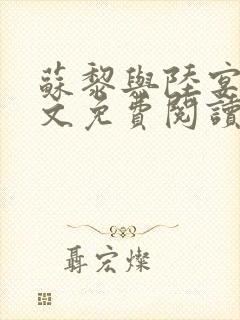 蘇黎與陸宴
文免費閱讀
聶宏燦